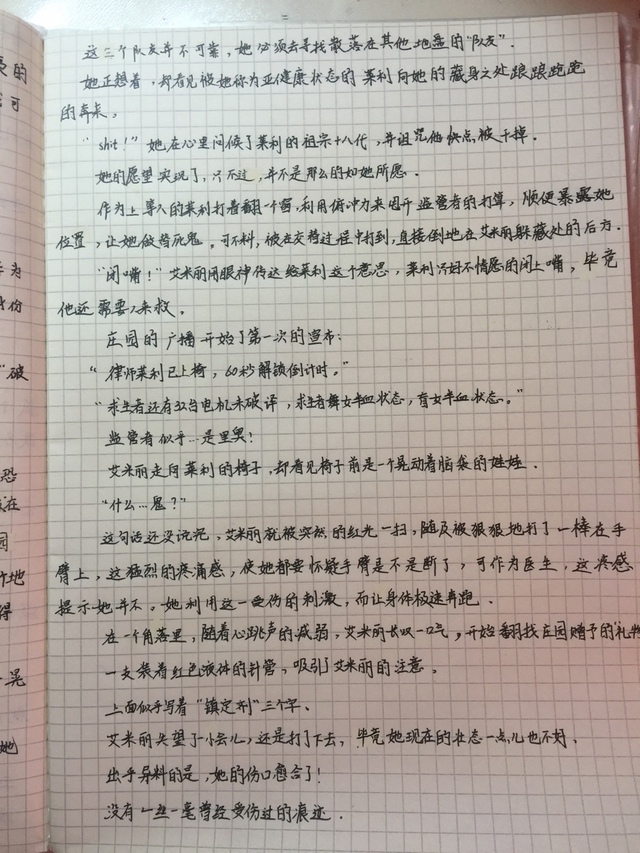 这三个队友并不可靠，她必须去寻找散落在其他地盘的"队友"．
她正想着，却看见被她称为亚健康状态的莱利向她的藏身之处踉踉跑跑
的奔来。
"shit！"她在心里问候了莱利的祖宗十八代，并诅咒他快点被干掉．
她的愿望实现了，只不过，并不是那么的如她所愿．
作为上等人的莱利打着翻一个窗，利用俯冲力来甩开监管者的打算，顺便暴露她
位置，让她做替死鬼。可不料，被在交替过程中打到，直接倒地在艾米丽躲藏处的后方．
"闭嘴！"艾米丽用眼神传达给莱利这个意思，莱利只好不情愿的闭上嘴，毕竟
他还需要人来救。
庄园的广播开始了第一次的宣布：
"律师莱利已上椅，60秒解锁倒计时。"
"求生者还有32台电机未破译，求生者舞女半血状态，盲女半血状态。"
监管者似乎…是里奥？
艾米丽走向莱利的椅子，却看见椅子前是一个晃动着脑袋的娃娃．
"什么…鬼？"
这句话还没说完，艾米丽就被突然的红光一扫，随及被狠狠地打了一棒在手
臂上，这猛烈的疼痛感，使她都要怀疑手臂是不是断了，可作为医生，这疼感
提示她并不。她利用这一受伤的刺激，而让身体极速奔跑．
在一个角落里，随着心跳声的减弱，艾米丽长叹一口气，开始翻找庄园赠予的"礼物
一支装着红色液体的针管，吸引了艾米丽的注意。
上面似乎写着"镇定剂"三个字．
艾米丽失望了一小会儿，还是打了下去，毕竟她现在的状态一点儿也不好．
出乎异料的是，她的伤口愈合了！
没有一丝一毫曾经受伤过的痕迹．
的
可
为
份
"破
恐
在
园
地
得
晃
她